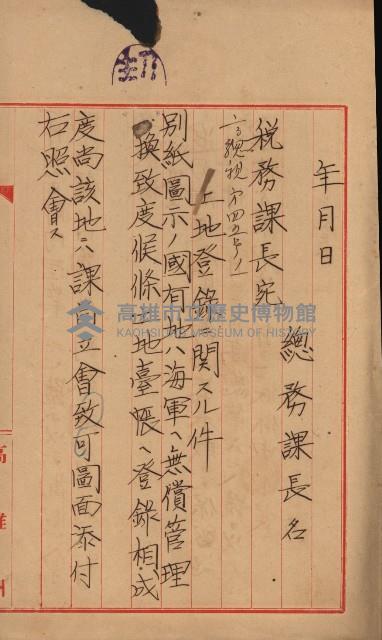 年月日
總務課長名
税務課長宛
土地登錄ニ関スル件
別紙圖示ノ國有地ハ海軍ヘ無償管理
換致度候條土地臺帳ヘ登錄相成
度尚該地ハ課員立會致可圖面添付
右照會ス
高雄市立歷史博物館
KAOHSIUNG MUSEUM OF HISTORY
高雄州